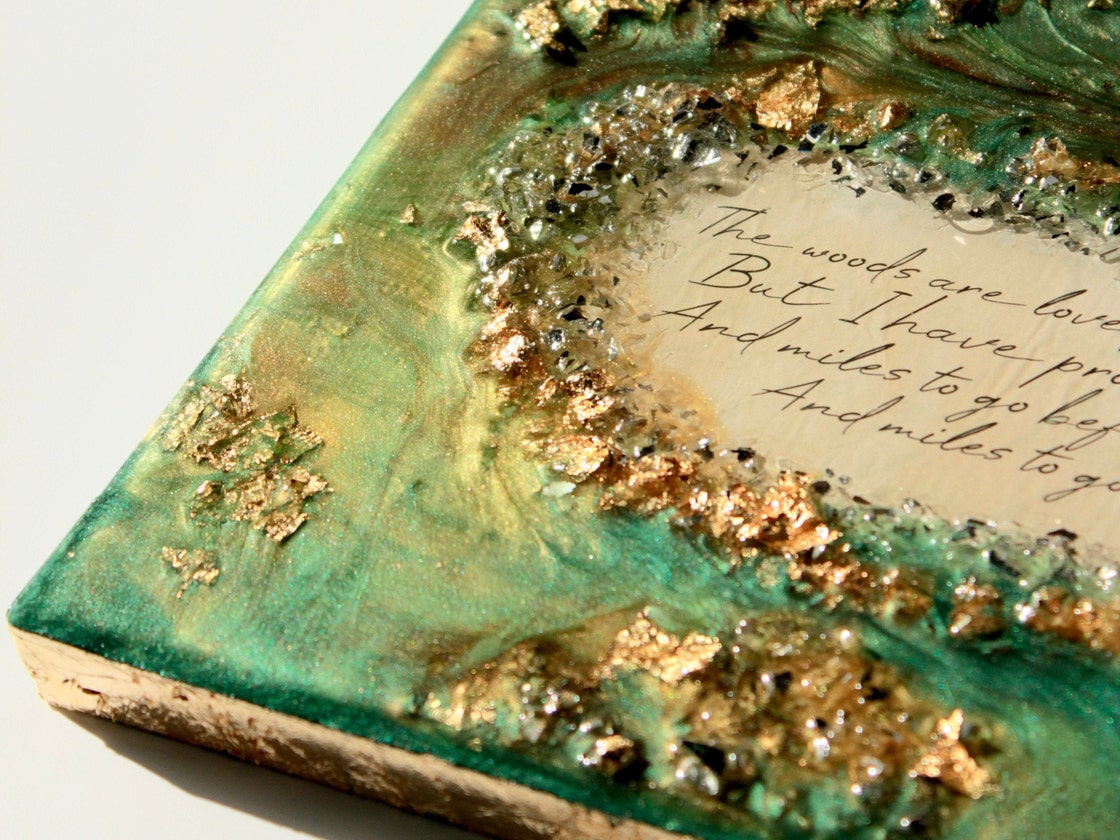 The woods are love
But I have pro
And miles to go bef
And miles to go